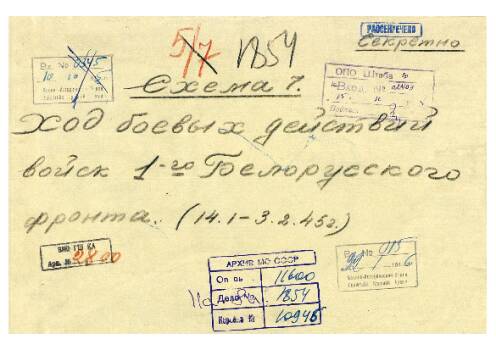 РАССЕКРЕЧЕНО
5/7 1854
Секретно
Вх. № 0345
Схема 7.
ОПО Штаба
Вход. №
Ход боевых действий
войск 1-го Белорусского
фронта. (14.1-3.2.45г.)
ВИО ГШ КА
Арх. № 2800
АРХИВ МО СССР
Оп сь 11600
Дело № 1854
Корока № 10946
Вх. № 015